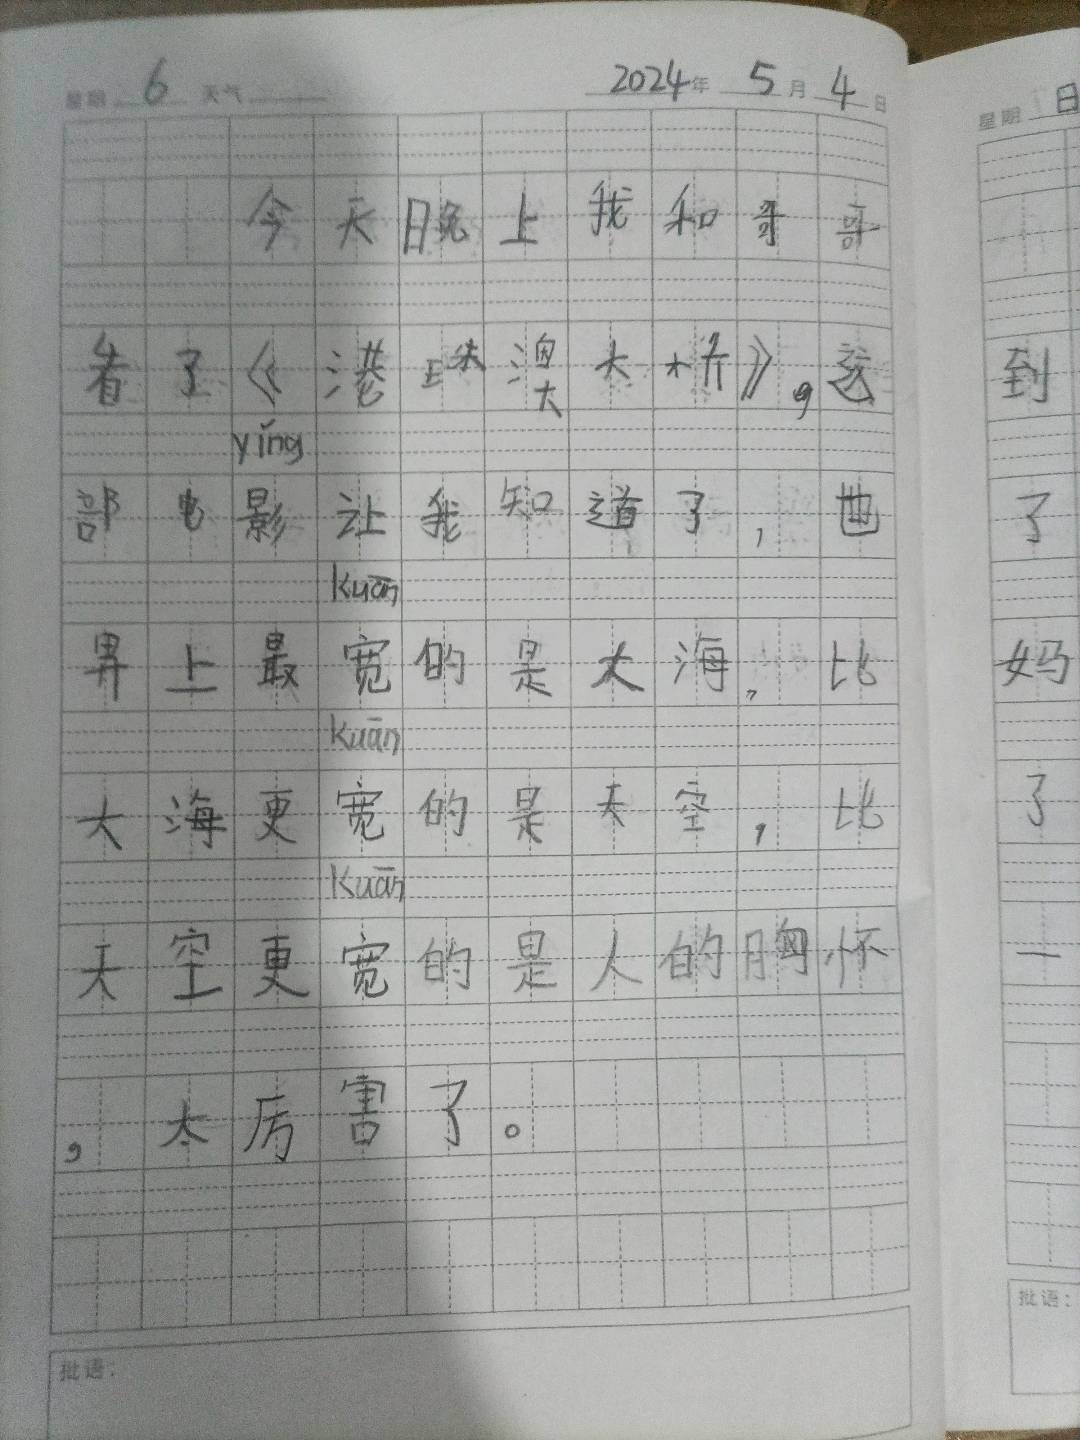 星期 6 天气
2024年 5月 4日
今天晚上我和哥哥
看了《港珠澳大桥》,这
yǐng
部电影让我知道了,世
kuān
界上最宽的是大海,比
kuān
大海更宽的是天空,比
kuān
天空更宽的是人的胸怀
,太厉害了。
批语:
星期 日
到
了
妈
了
一
批语: